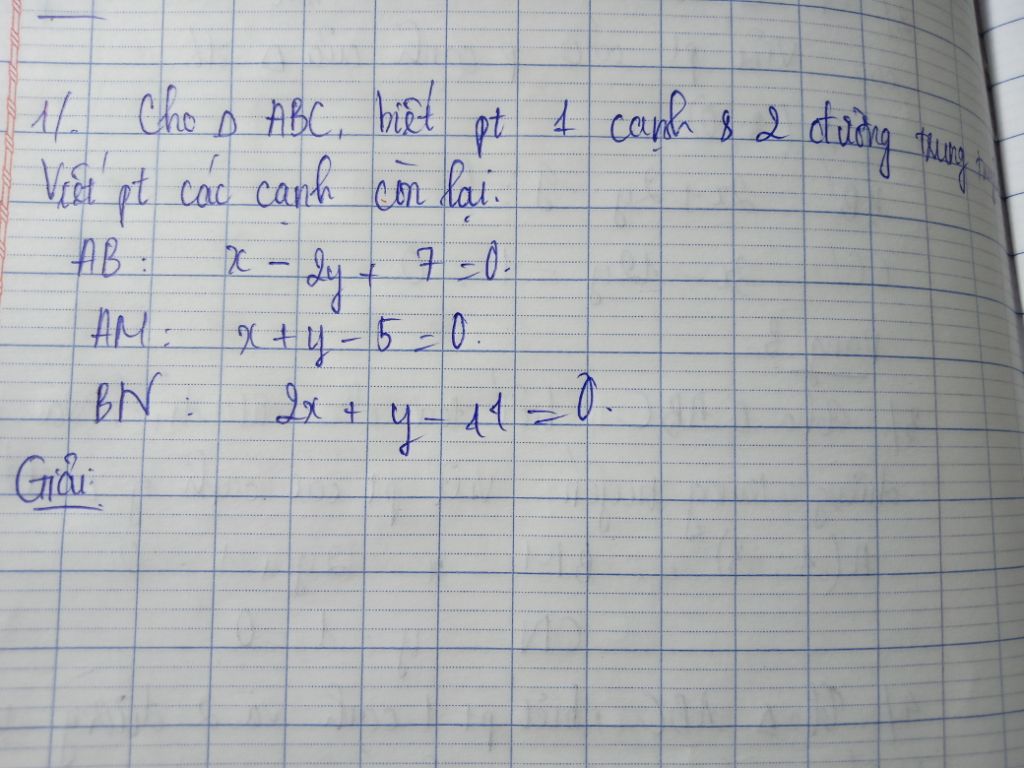 1/. Cho Δ ABC, biết pt 1 cạnh & 2 đường trung
Viết pt các cạnh còn lại.
AB: x - 2y + 7 = 0.
AM: x + y - 5 = 0.
BN: 2x + y - 11 = 0.
Giải: